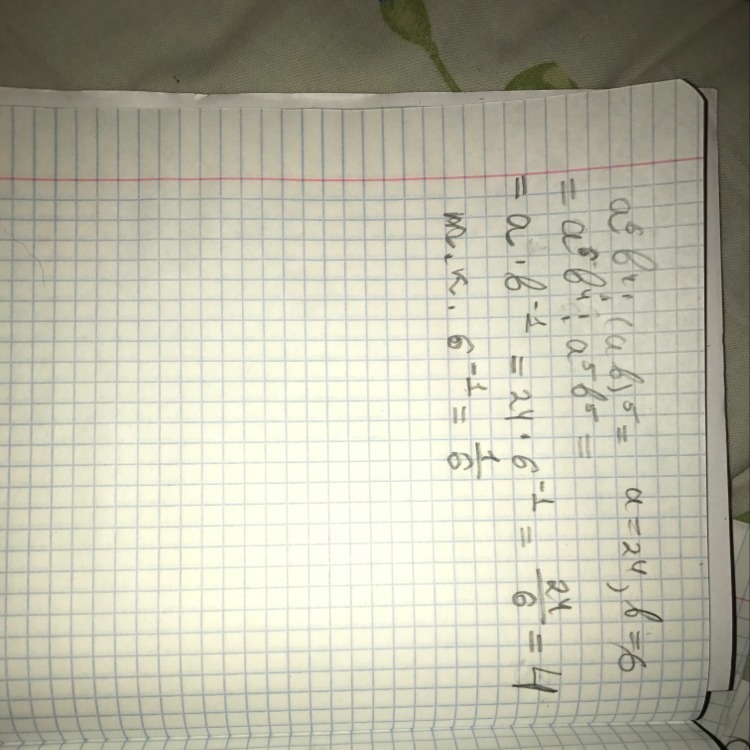 a⁶b⁴ : (ab)⁵ = a = 24, b = 6
= a⁶b⁴ : a⁵b⁵ =
= a · b⁻¹ = 24 · 6⁻¹ = 24/6 = 4
т.к. 6⁻¹ = 1/6